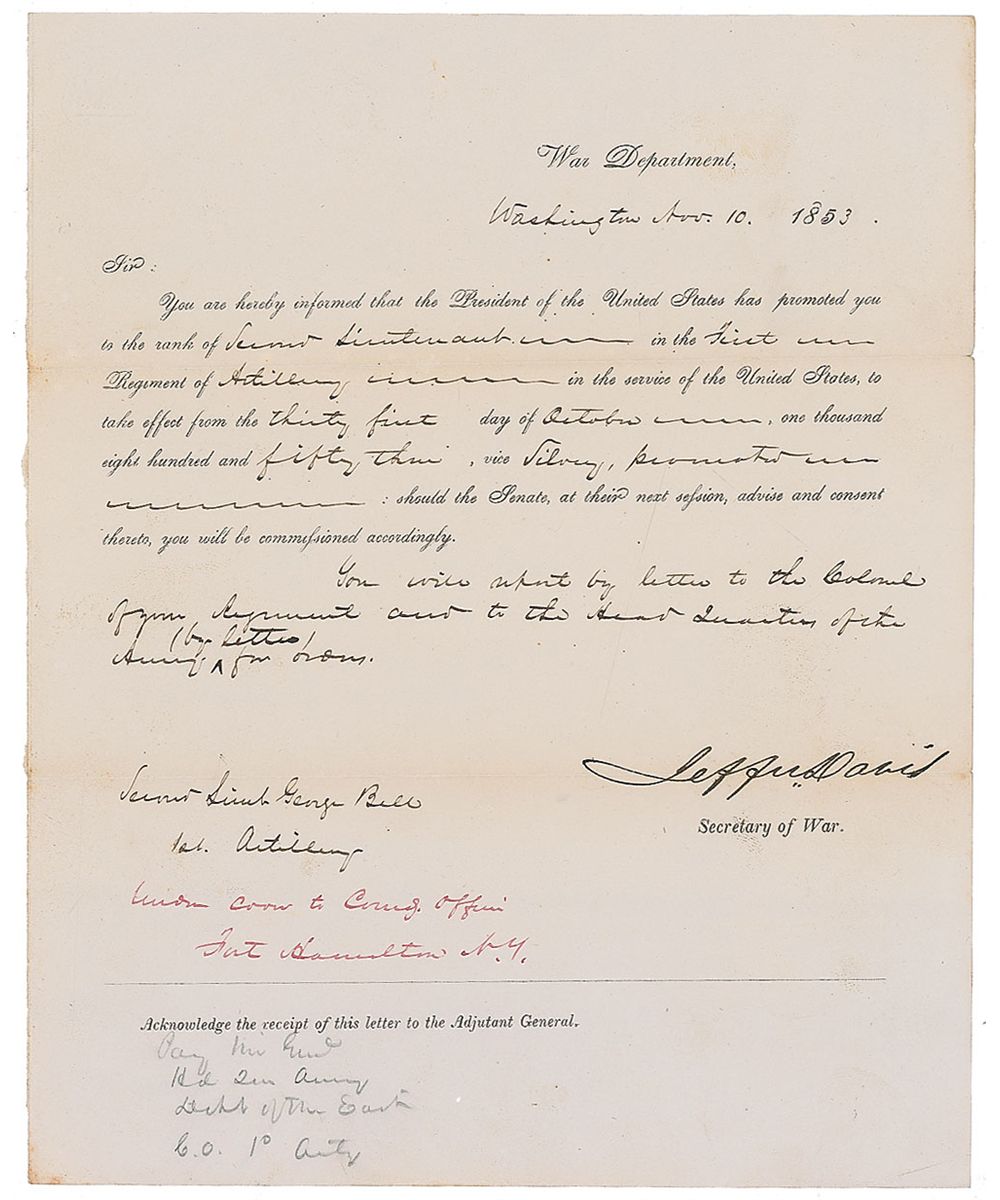 War Department,
Washington Nov. 10. 1853.
Sir:
You are hereby informed that the President of the United States has promoted you
to the rank of Second Lieutenant in the First
Regiment of Artillery in the service of the United States, to
take effect from the thirty first day of October, one thousand
eight hundred and fifty three, vice Silvey, promoted
: should the Senate, at their next session, advise and consent
thereto, you will be commissioned accordingly.
You will report by letter to the Colonel
of your Regiment and to the Head Quarters of the
(by letter)
Army ^ for orders.
Jeffn. Davis
Secretary of War.
Second Lieut George Bell
1st. Artillery
Under cover to Comdg. Officer
Fort Hamilton N.Y.
Acknowledge the receipt of this letter to the Adjutant General.
Pay Mr Genl
Hd Qrs Army
Dept of the East
C.O. 1o Arty